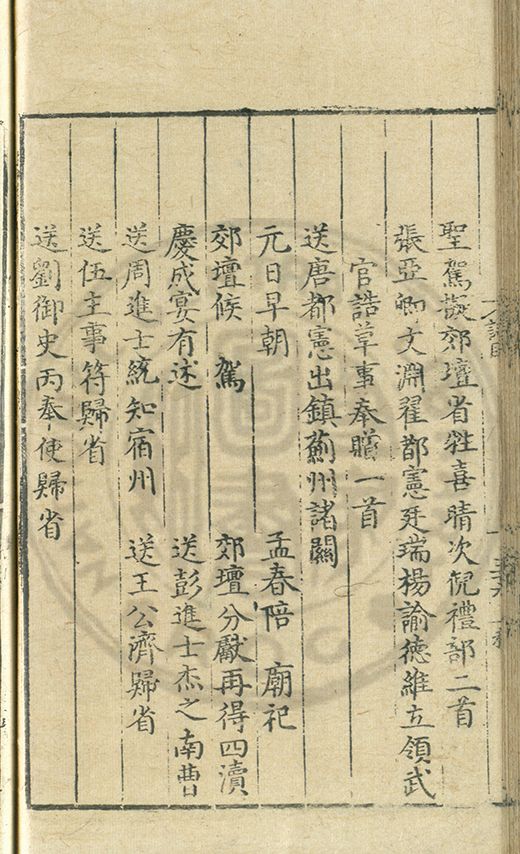 聖駕擬郊壇省牲喜晴次倪禮部二首
張亞卿文淵翟都憲廷瑞楊諭德維立領武
官誥草事奉贈一首
送唐都憲出鎮薊州諸關
元日早朝　孟春陪　廟祀
郊壇候　駕　郊壇分獻再得四瀆
慶成宴有述　送彭進士杰之南曹
送周進士統知宿州　送王公濟歸省
送伍主事符歸省
送劉御史丙奉使歸省